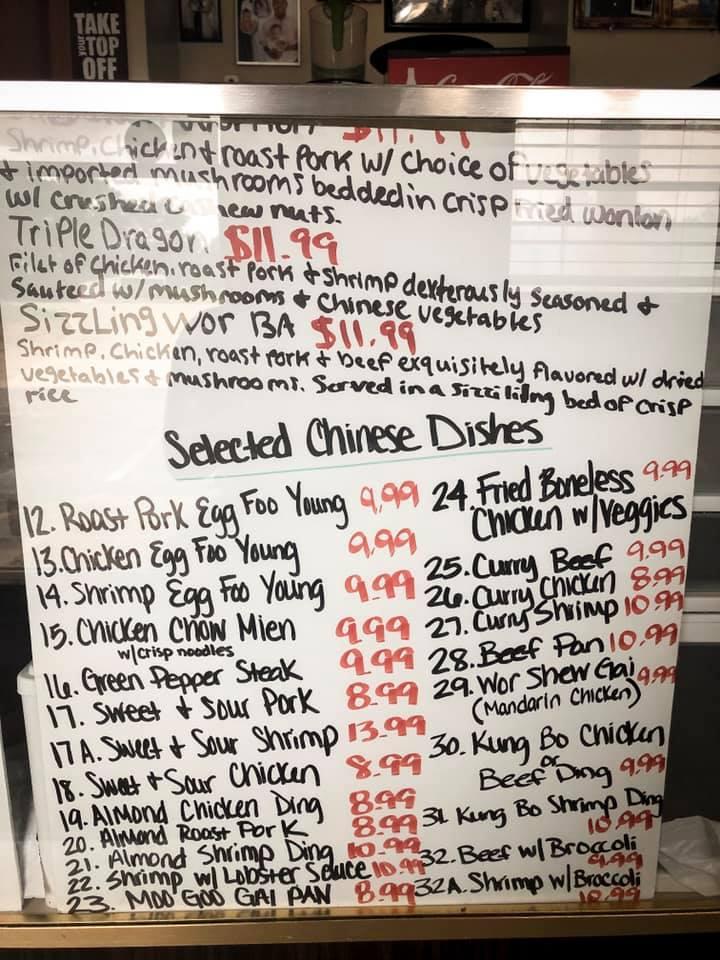 TAKE
YOUR
TOP
OFF
Coca-Cola
$11.99
Shrimp, Chicken + roast Pork w/ Choice of vegetables
+ imported mushrooms bedded in crisp fried wonton
w/ crushed cashew nuts.
Triple Dragon $11.99
Filet of Chicken, roast Pork + Shrimp dexterously Seasoned +
Sauteed w/ mushrooms + Chinese vegetables
Sizzling Wor BA $11.99
Shrimp, Chicken, roast Pork + beef exquisitely flavored w/ dried
vegetables + mushrooms. Served in a sizzilidng bed of crisp
rice
Selected Chinese Dishes
12. Roast Pork Egg Foo Young 9.99
13. Chicken Egg Foo Young 9.99
14. Shrimp Egg Foo Young 9.99
15. Chicken Chow Mien 9.99
w/crisp noodles
16. Green Pepper Steak 9.99
17. Sweet + Sour Pork 8.99
17A. Sweet + Sour Shrimp 13.99
18. Sweet + Sour Chicken 8.99
19. Almond Chicken Ding 8.99
20. Almond Roast Pork 8.99
21. Almond Shrimp Ding 10.99
22. Shrimp w/ Lobster Sauce 10.99
23. MOO GOO GAI PAN 8.99
24. Fried Boneless 9.99
Chicken w/Veggies
25. Curry Beef 9.99
26. Curry Chicken 8.99
27. Curry Shrimp 10.99
28. Beef Pan 10.99
29. Wor Shew Gai 9.99
(Mandarin Chicken)
30. Kung Bo Chicken
or
Beef Ding 9.99
31. Kung Bo Shrimp Ding
10.99
32. Beef w/ Broccoli
9.99
32A. Shrimp w/ Broccoli
10.99